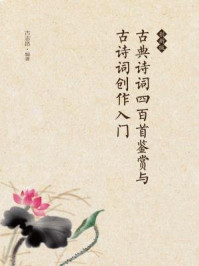 古典诗词四百首鉴赏与
古诗词创作入门
编著